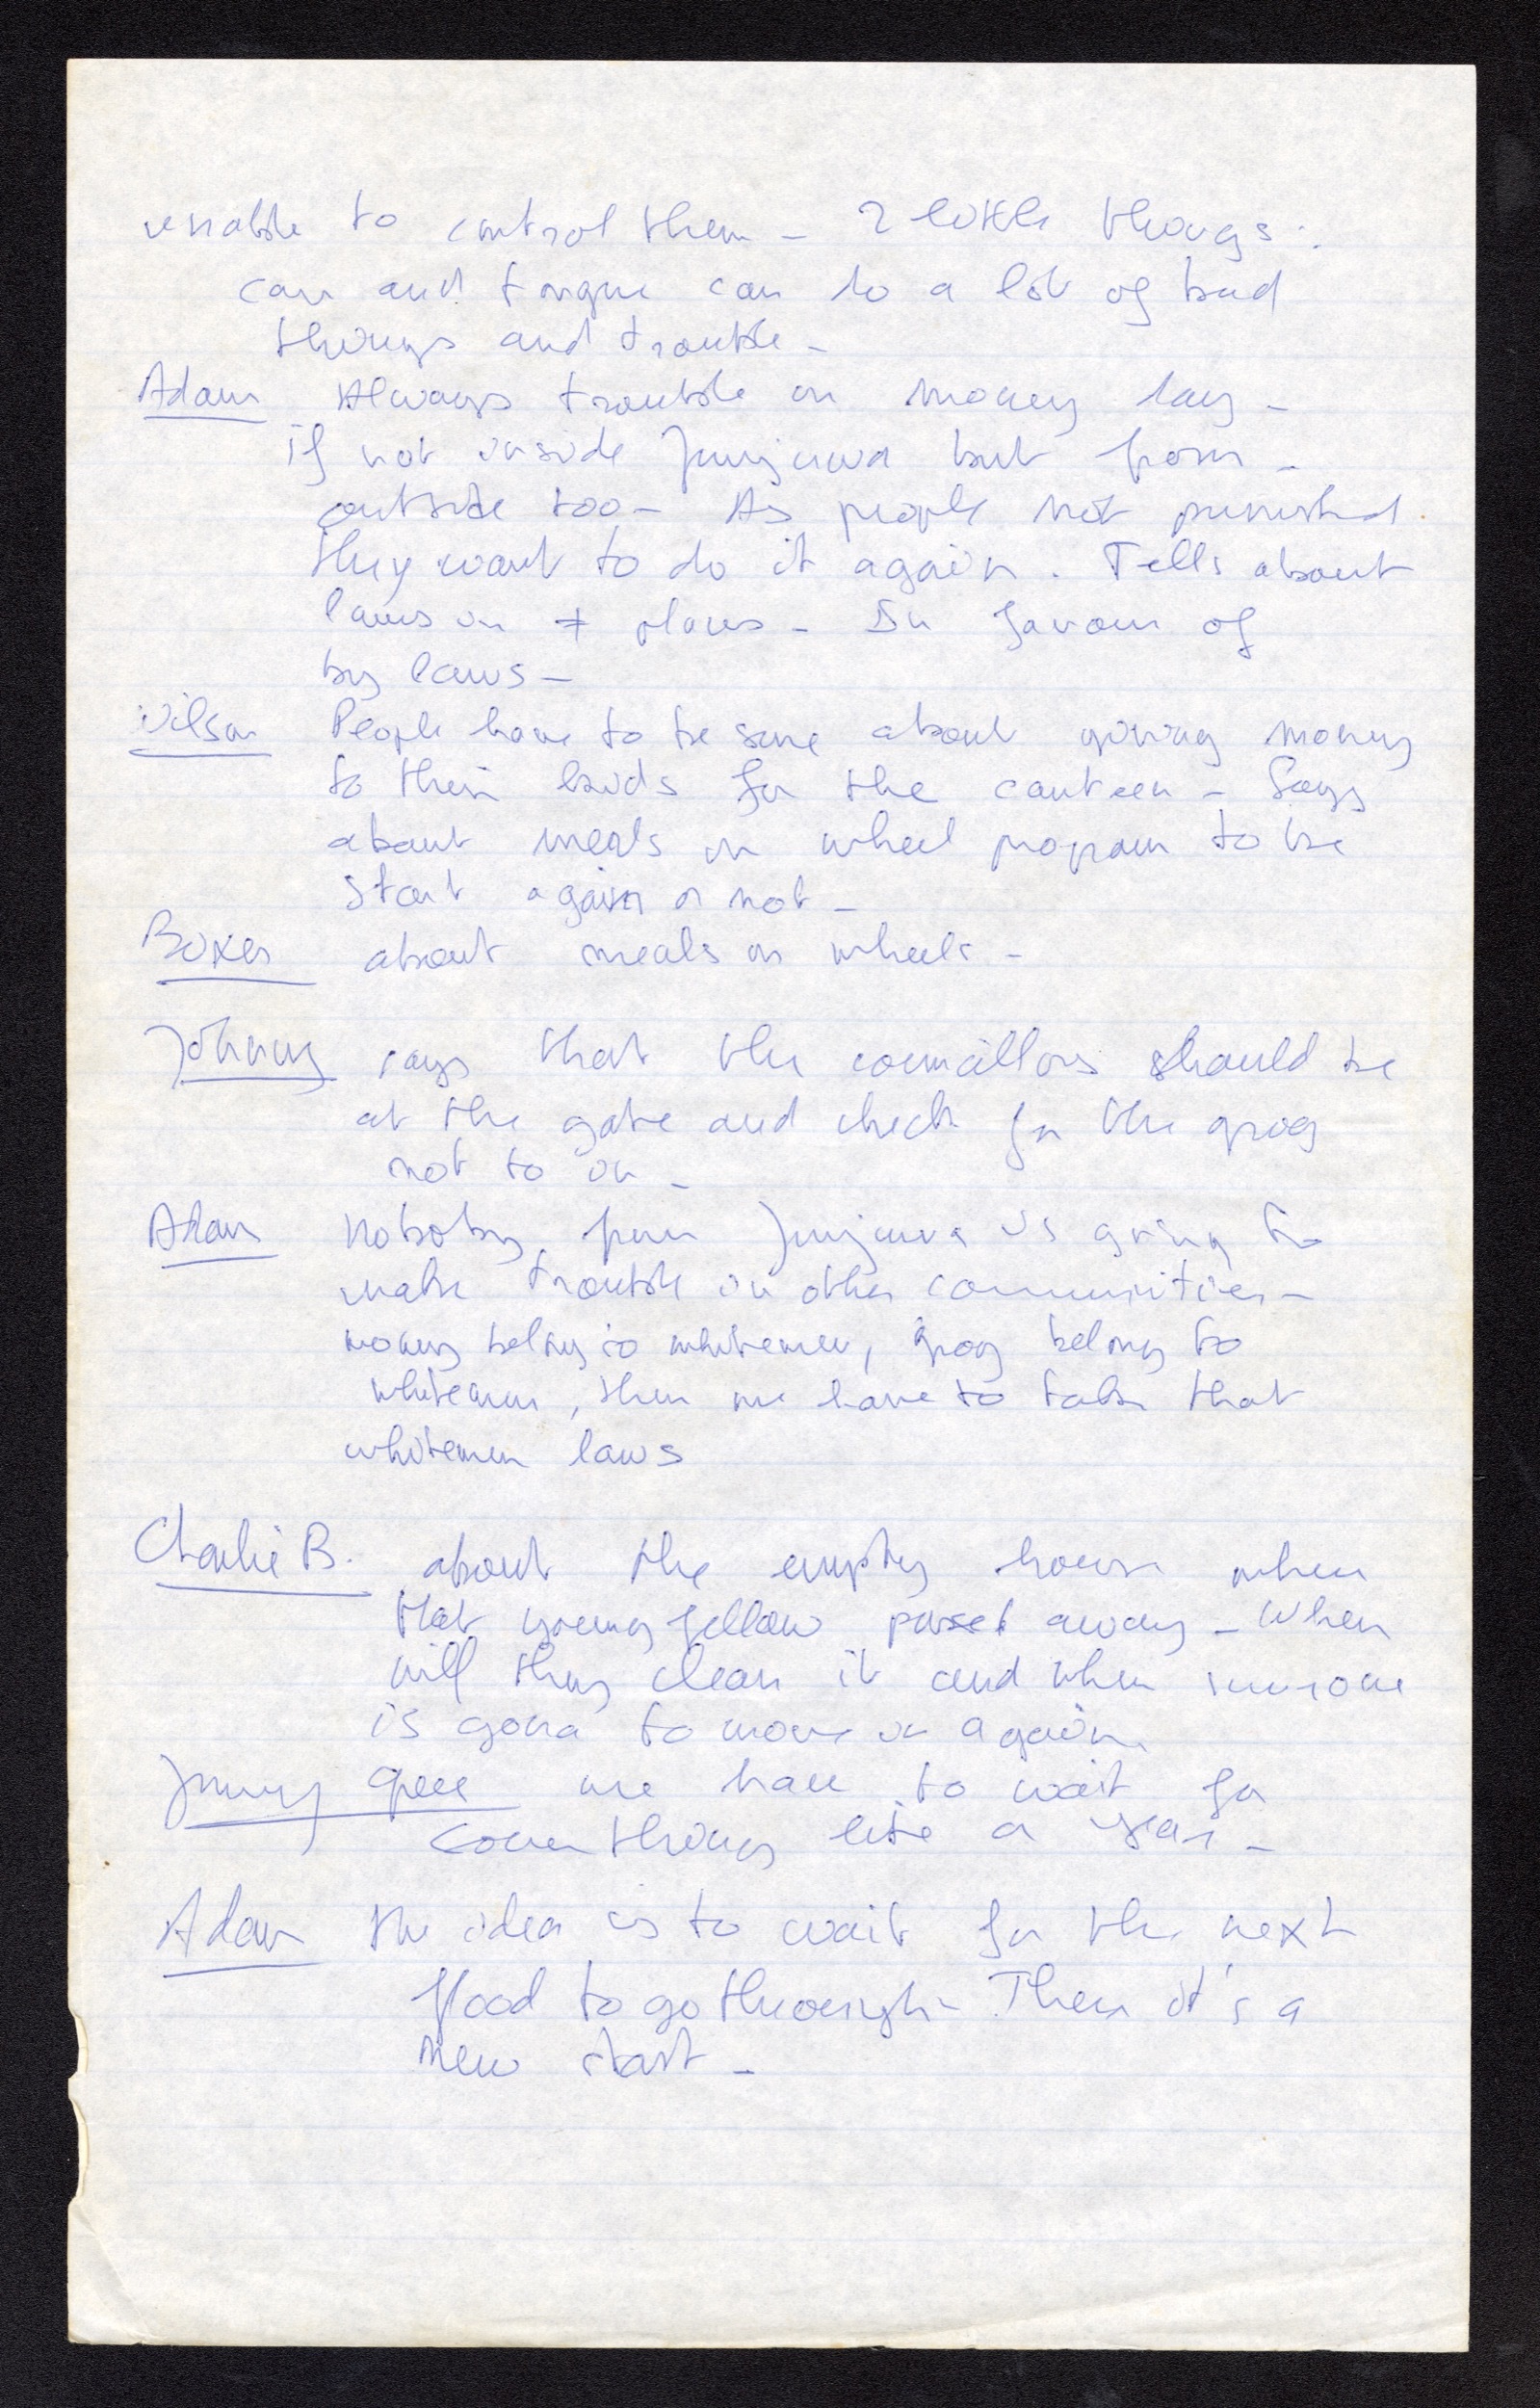 unable to control them - 2 little things:
can and tongue can do a lot of bad
things and trouble -
Adam Always trouble on money day -
if not inside Junjuwa but from -
outside too - As people not punished
they want to do it again. Tells about
laws in ≠ places - In favour of
by laws -
Wilson People have to be sure about giving money
to their kids for the canteen - Says
about meals on wheel program to be
start again or not -
Boxer about meals on wheels -
Johnny says that the councillors should be
at the gate and check for the grog
not to in -
Adam Nobody from Junjuwa is going to
make trouble in other communities -
money belong to whitemen, grog belong to
whitemen, then we have to take that
whitemen laws
Charlie B. about the empty house when
that young fellow passed away - When
will they clean it and when someone
is gona to move in again
Jimmy we have to wait for
something like a year -
Adam the idea is to wait for the next
flood to go through - Then it's a
new start -